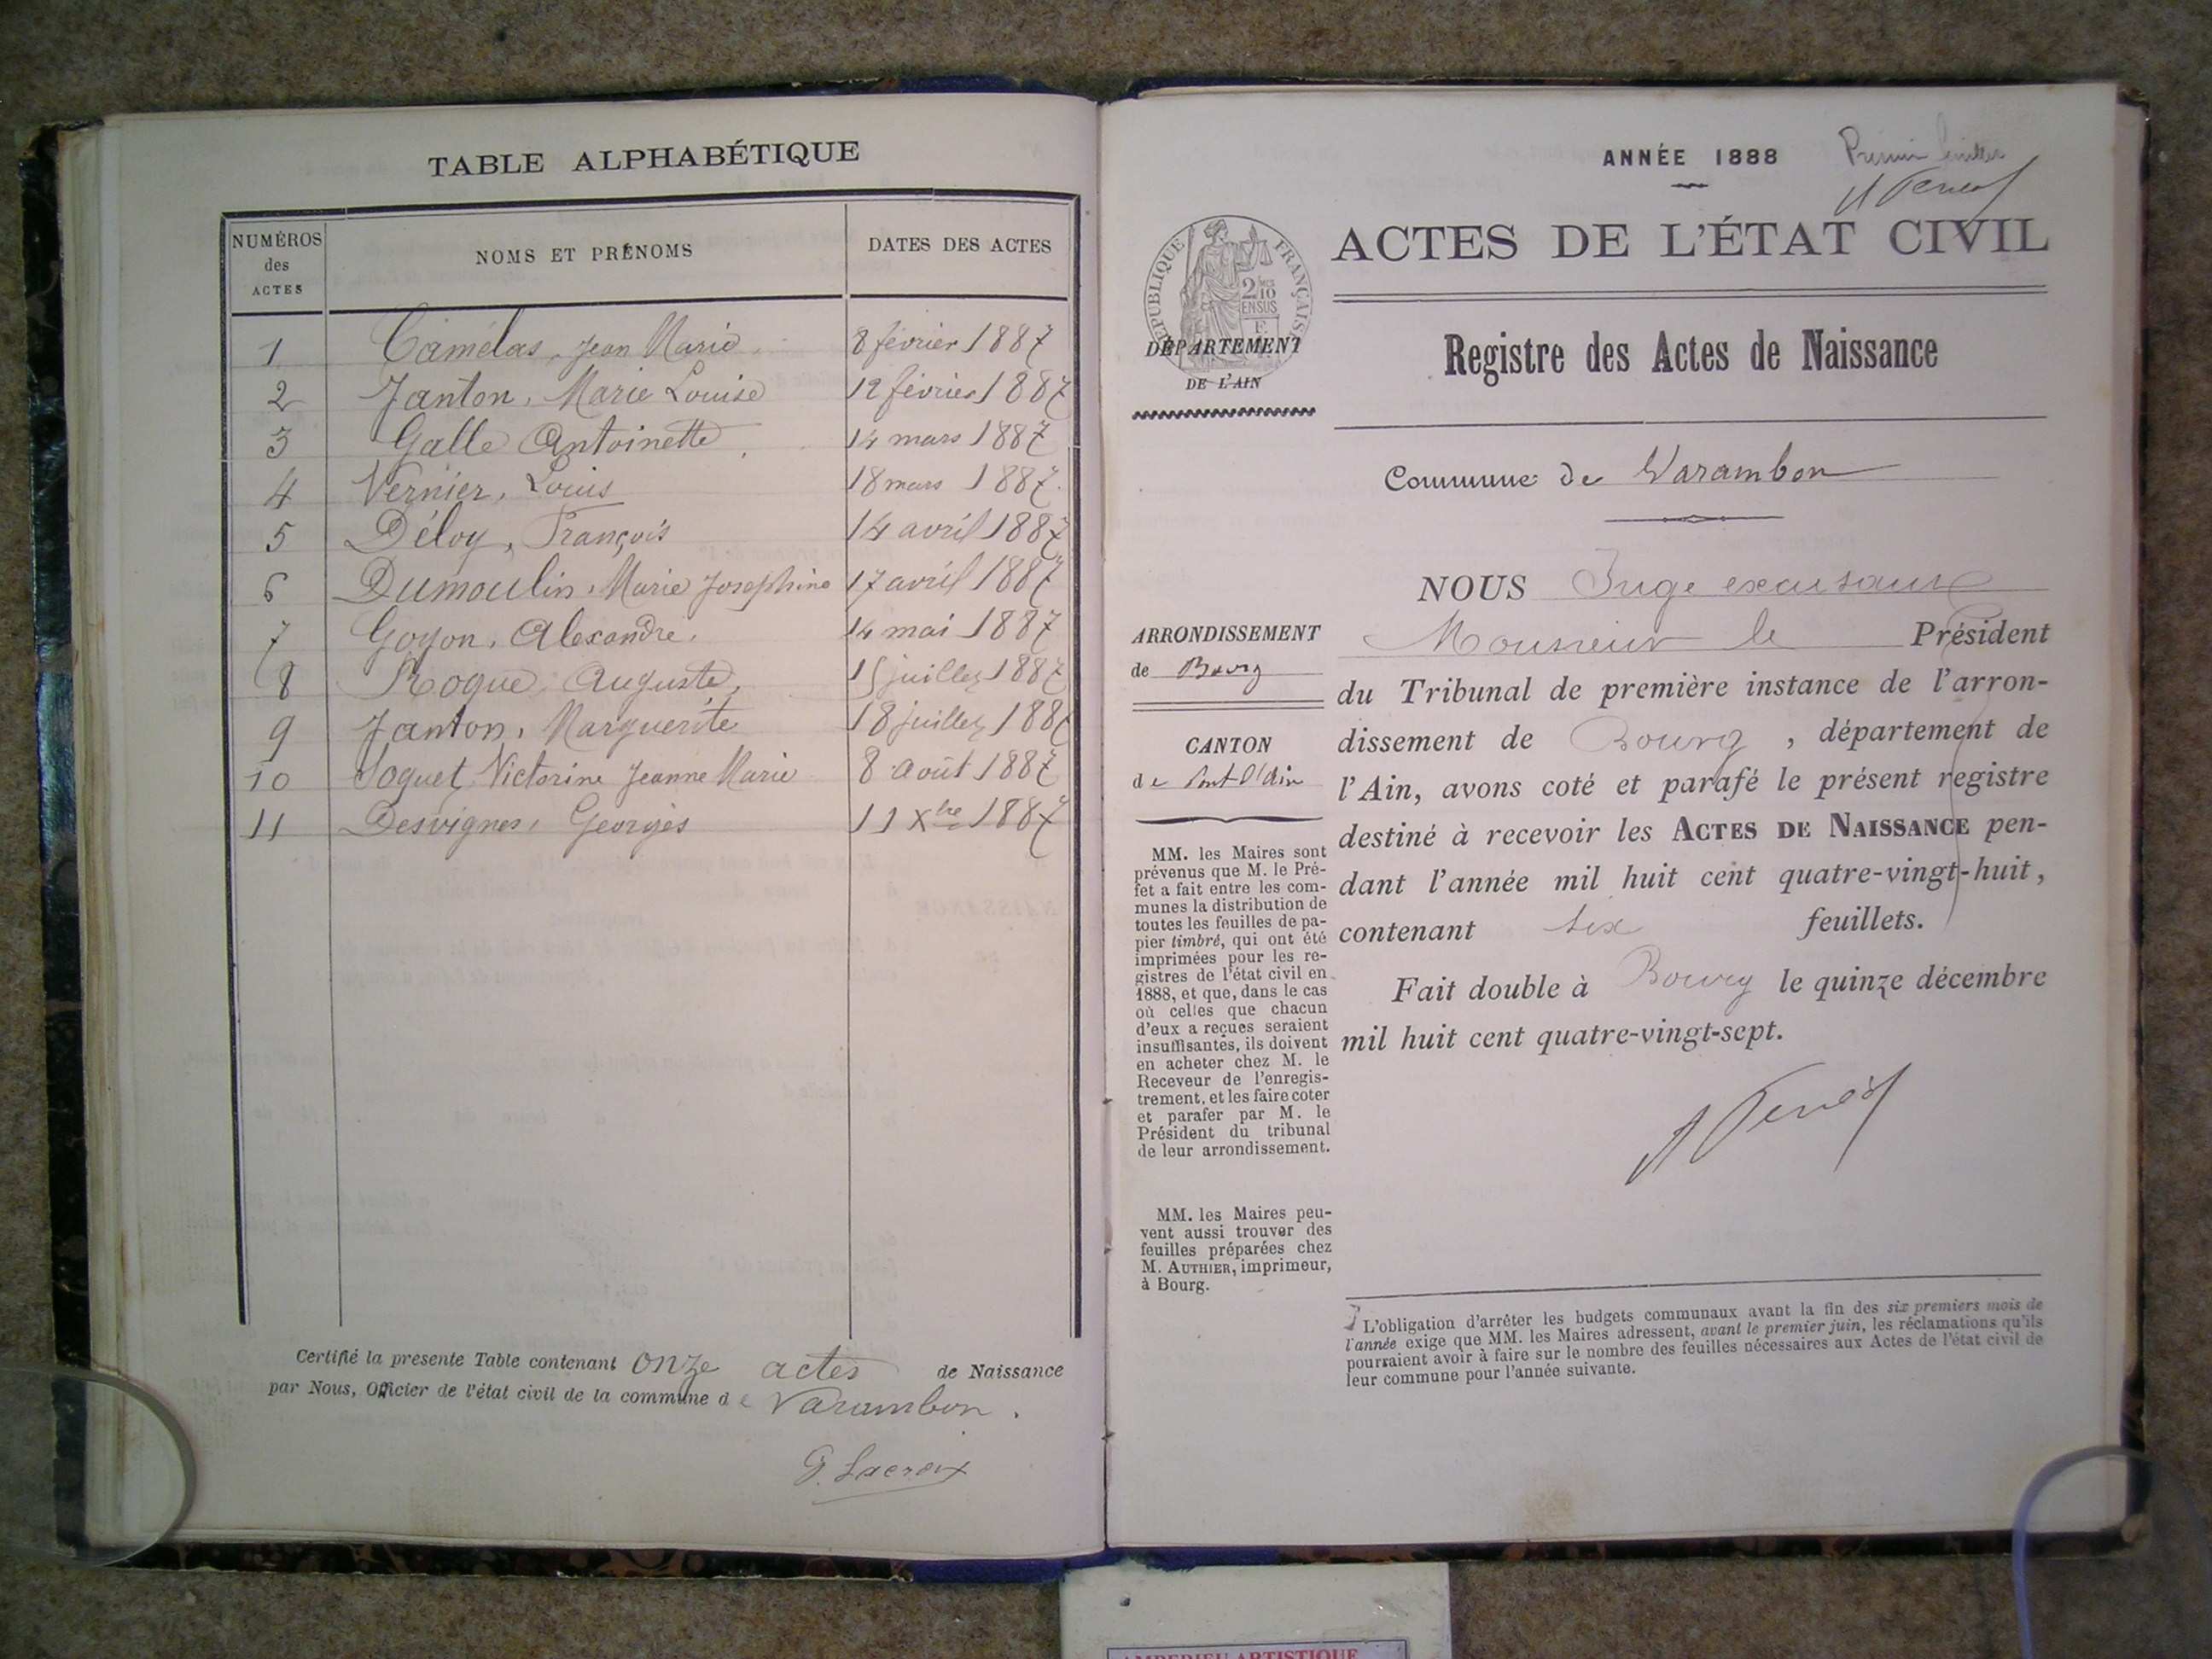 TABLE ALPHABÉTIQUE
NUMÉROS des ACTES NOMS ET PRÉNOMS DATES DES ACTES
1 Camélas, Jean Marie 8 février 1887
2 Janton, Marie Louise 12 février 1887
3 Galle Antoinette 14 mars 1887
4 Vernier, Louis 18 mars 1887.
5 Déloy, François 14 avril 1887
6 Dumoulin, Marie Josephine 17 avril 1887
7 Goyon, Alexandre, 14 mai 1887
8 Roque Auguste, 15 juillet 1887
9 Janton, Marguerite 18 juillet 1887
10 Soquet Victorine Jeanne Marie 8 août 1887
11 Desvignes, Georges 11 Xbre 1887
Certifié la présente Table contenant onze actes de Naissance
par Nous, Officier de l'état civil de la commune de Varambon.
G. Lacroix
ANNÉE 1888
Premier
ACTES DE L'ÉTAT CIVIL
RÉPUBLIQUE FRANÇAISE
2 10
EN SUS
DÉPARTEMENT
DE L'AIN
Registre des Actes de Naissance
Commune de Varambon
ARRONDISSEMENT
de Bourg
CANTON
de Pont d'Ain
MM. les Maires sont
prévenus que M. le Pré-
fet a fait entre les com-
munes la distribution de
toutes les feuilles de pa-
pier timbré, qui ont été
imprimées pour les re-
gistres de l'état civil en
1888, et que, dans le cas
où celles que chacun
d'eux a reçues seraient
insuffisantes, ils doivent
en acheter chez M. le
Receveur de l'enregis-
trement, et les faire coter
et parafer par M. le
Président du tribunal
de leur arrondissement.
MM. les Maires peu-
vent aussi trouver des
feuilles préparées chez
M. AUTHIER, imprimeur,
à Bourg.
NOUS Juge excusant
Monsieur le Président
du Tribunal de première instance de l'arron-
dissement de Bourg, département de
l'Ain, avons coté et parafé le présent registre
destiné à recevoir les ACTES DE NAISSANCE pen-
dant l'année mil huit cent quatre-vingt-huit,
contenant six feuillets.
Fait double à Bourg le quinze décembre
mil huit cent quatre-vingt-sept.
L'obligation d'arrêter les budgets communaux avant la fin des six premiers mois de
l'année exige que MM. les Maires adressent, avant le premier juin, les réclamations qu'ils
pourraient avoir à faire sur le nombre des feuilles nécessaires aux Actes de l'état civil de
leur commune pour l'année suivante.